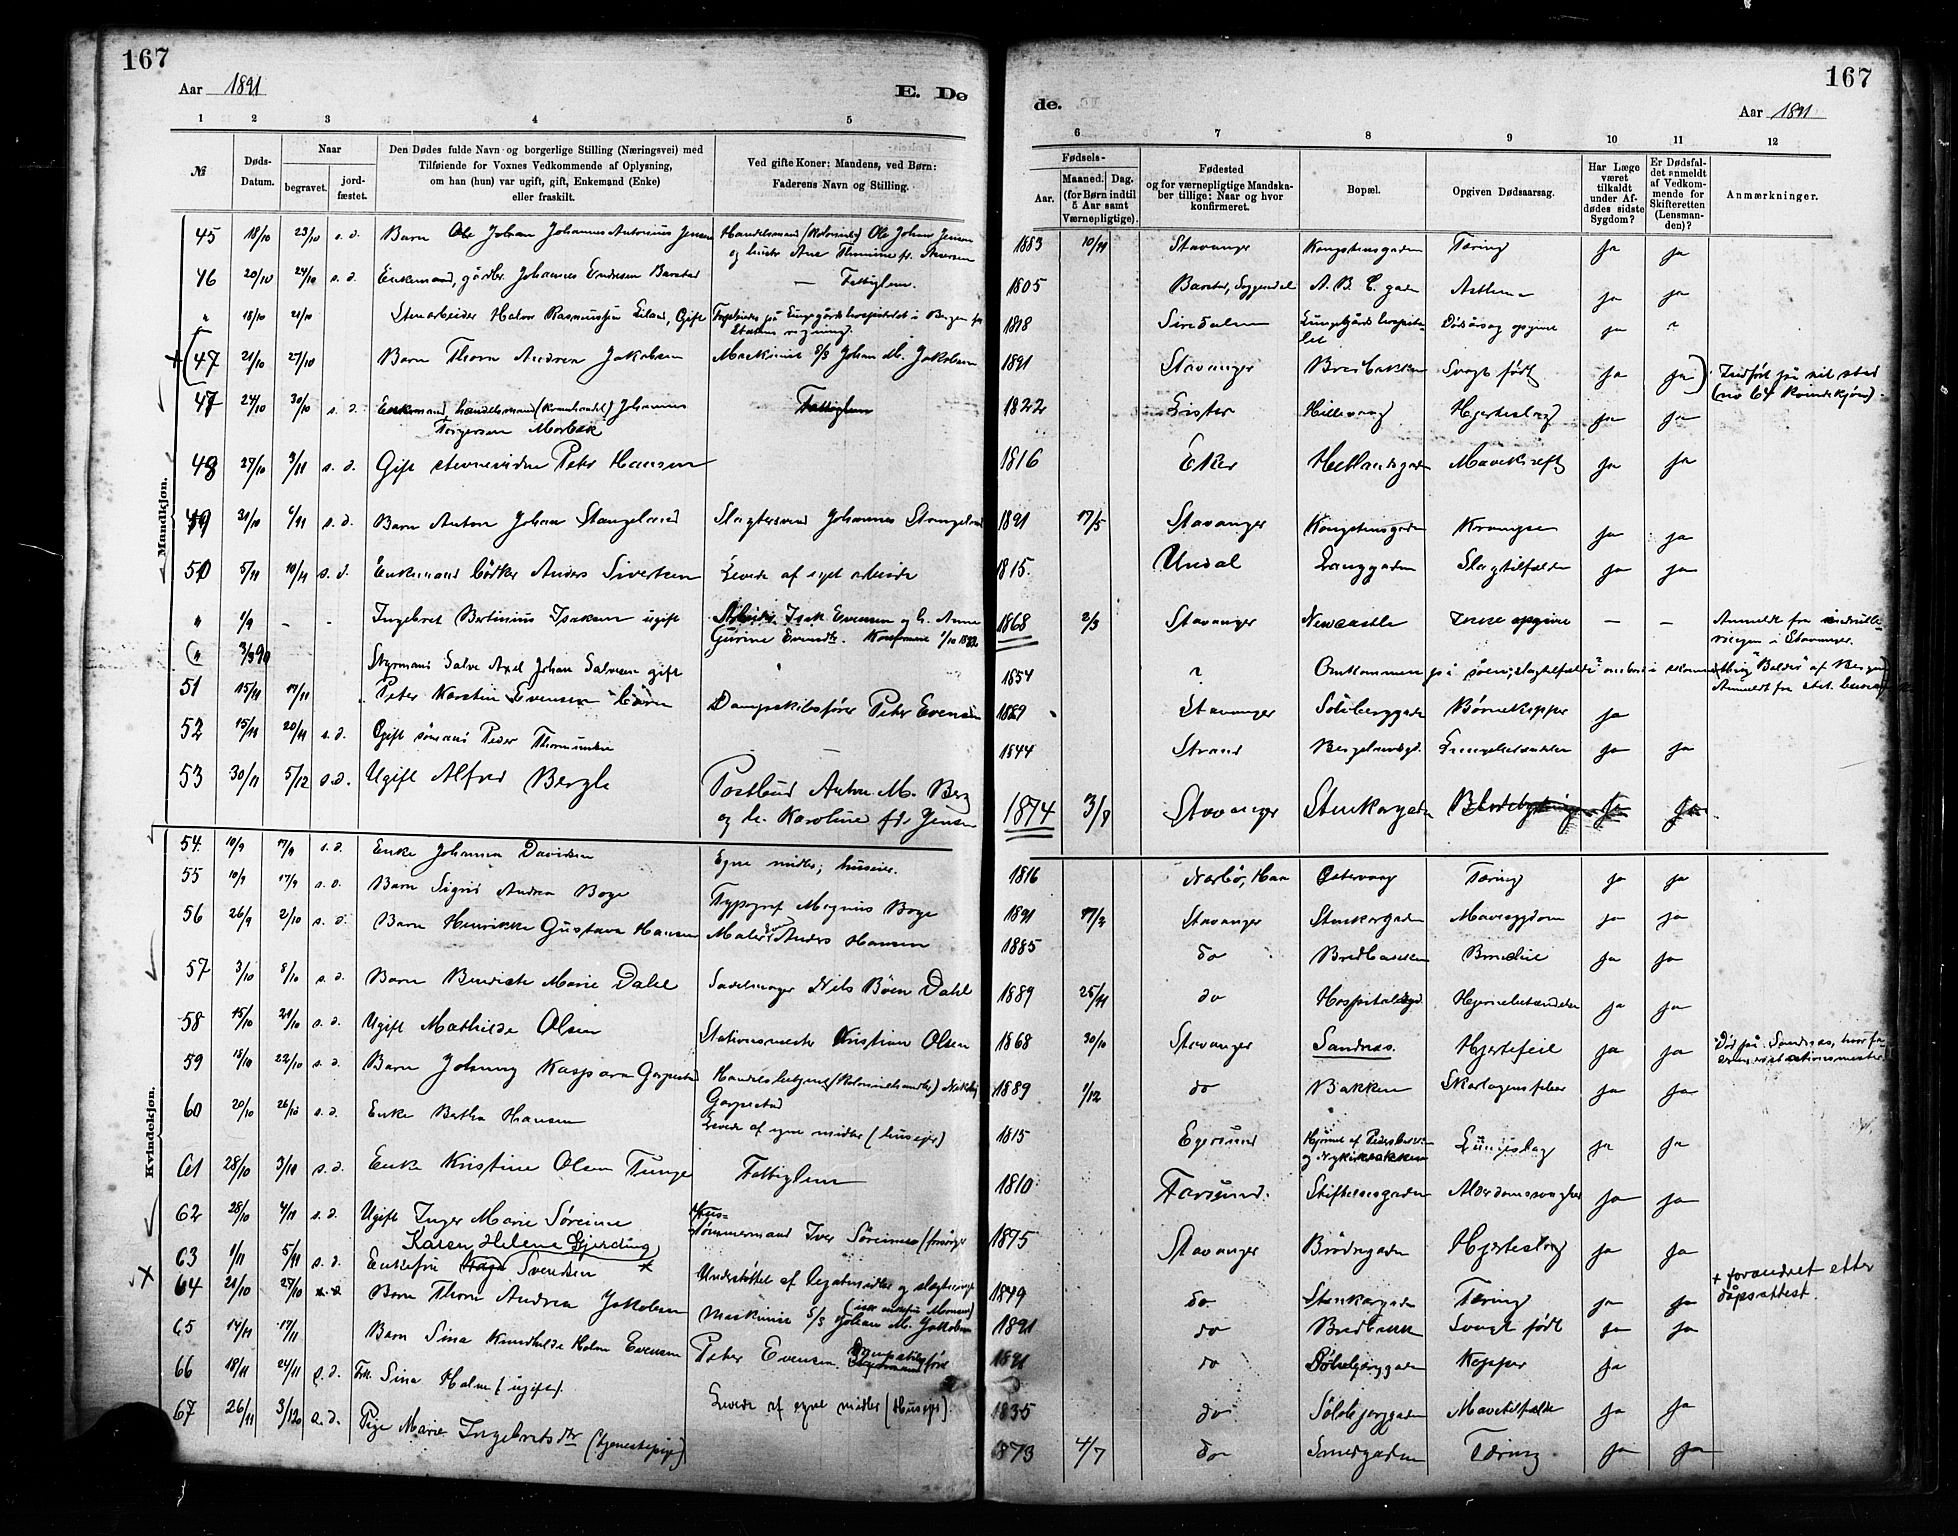 167
Aar 1891
E. Dø
1 2 3 4 5
№
Døds-
Datum.
Naar
begravet.
jord-
fæstet.
Den Dødes fulde Navn og borgerlige Stilling (Næringsvei) med
Tilføiende for Voxnes Vedkommende af Oplysning,
om han (hun) var ugift, gift, Enkemand (Enke)
eller fraskilt.
Ved gifte Koner: Mandens, ved Børn:
Faderens Navn og Stilling.
Mandkjøn.
45 18/10 23/10 s. d. Barn Ole Johan Johannes Antonius Jensen Handelsmand (Kolonial) Ole Johan Jensen
og hustru Ane
46 20/10 24/10 s. d. Enkemand, gårdbr. Johannes Endresen Barstad — Fattiglem.
" 18/10 21/10 Stenarbeider Halvor Rasmussen Eiland, Gift
Statens regning.
47 21/10 27/10 Barn Thora Andrea Jakobsen Maskinist S/S Johan M. Jakobsen
47 24/10 30/10 s. d. Enkemand, handelsmand (Kramhandel) Johannes Fattiglem
Torgersen Morbæk
48 27/10 3/11 s. d. Gift stevnevidne Peter Hansen
49 31/10 4/11 s. d. Barn Anton Johan Stangeland Slagtersvend Johannes Stangeland
50 5/11 10/11 s. d. Enkemand Bødker Anders Sivertsen Levede af eget arbeide
" 1/9 - - Ingebret Bertinius Isaksen ugift Arbeider Isak Evensen og h. Anne
Gurine Evensdtr. Konfirmeret 1/10 1882
" 3/9 90 Styrmand Salve Axel Johan Salvesen gift
51 15/11 17/11 Peter Karstin Evensen Barn Dampskibsfører Peter Evensen
52 15/11 20/11 s. d. Gift sømand Peder Thormundsen
53 30/11 5/12 s. d. Ugift Alfred Bergh Postbud Anton M. Berg
og h. Karoline fdt Jensen
Kvindekjøn.
54 10/9 17/9 s. d. Enke Johanna Davidsen Egne midler; huseier.
55 10/9 17/9 s. d. Barn Sigrid Andrea Boge Typograf Magnus Boge
56 26/9 2/10 s. d. Barn Henrikke Gustava Hansen Maler Anders Hansen
57 3/10 8/10 s. d. Barn Benedicte Marie Dahl Sadelmager Nils Böen Dahl
58 15/10 21/10 s. d. Ugift Mathilde Olsen Stationsmester Kristian Olsen
59 18/10 22/10 s. d. Barn Johanny Kaspara Garpestad Handelsbetjent (Kolonialhandler)
Garpestad
60 20/10 26/10 s. d. Enke Bertha Hansen Levede af egne midler (huseier)
61 28/10 3/11 s. d. Enke Kristine Olsen Tunge Fattiglem
62 28/10 4/11 s. d. Ugift Inger Marie Søreime Hus-
tømmermand Iver Søreimes (forsørger
Karen Helene Gjerding
63 1/11 5/11 s. d. Enkefru Svendsen Understøttet af Legatmidler og
64 21/10 27/10 s. d. Barn Thora Andrea Jakobsen Maskinist S/S Johan M. Jakobsen
65 14/11 17/11 Barn Sina Kundhilde Holm Evensen Peter Evensen. Dampskibsfører
66 18/11 24/11 s. d. Frk. Sina Holm (ugift). Levede af egne midler (Huseier)
67 26/11 3/12 s. d. Pige Marie Ingebretsdtr (tjenestepige)
167
de.
Aar 1891
6 7 8 9 10 11 12
Fødsels-
Aar.
Maaned. Dag.
(for Børn indtil
5 Aar samt
Værnepligtige).
Fødested
og for værnepligtige Mandska-
ber tillige: Naar og hvor
konfirmeret.
Bopæl.
Opgiven Dødsaarsag.
Har Læge
været
tilkaldt
under Af-
dødes sidste
Sygdom?
Er Dødsfal-
det anmeldt
af Vedkom-
mende for
Skifteretten
(Lensman-
den)?
Anmærkninger.
1883 10/11 Stavanger Kongstensgaden Tæring ja ja
1805 Barstad, Soggendal A. B. C. gaden Asthma ja ja
1818 Siredalen Lungegårdshospita- Dødsårsag opgivet ja "
let
1891 Stavanger Bredbakken Svagt født ja ja Indført på sit sted
(no 64 Kvindekjøn).
1822 Lister Hillevaag Hjerteslag ja ja
1816 Eker Hetlandsgaden Mavekræft ja ja
1891 17/5 Stavanger Kongstensgaden Krampe ja ja
1815 Undal Langgaden Slagtilfælde ja ja
1868 2/3 Stavanger Newcastle Ikke opgivet — — Anmeldt fra
i Stavanger.
1854 " Omkommen på søen; slagtilfælde ombord i skonnertbrig "Balder" af Bergen
Anmeldt fra
1889 Stavanger Sølvberggaden Børnekopper ja
1844 Strand Bergelandsgd. ja ja
1874 3/8 Stavanger Stenkargaden ja ja
1816 Nærbø, Haa Østervaag Tæring ja ja
1891 17/2 Stavanger Stenkargaden Mavesygdom ja ja
1885 do Bredbakken ja ja
1889 25/11 do Hospitalsgd. Hjernebetændelse ja ja
1868 30/10 Stavanger Sandnæs. Hjertefeil ja ja Død på Sandnæs, hvor fa-
deren var stationsmester.
1889 1/12 do Bakken Skarlagensfeber ja ja
1815 Egersund Hjørnet af Pedersbak-
og Nykirkebakken Lungeslag ja ja
1810 Farsund. Stiftelsesgaden Alderdomssvaghed ja ja
1875 Stavanger Brødregaden Hjerteslag ja ja
1849 do. Stenkargaden Tæring ja ja + forandret etter
dåpsattest.
1891 do Bredbakk Svagt født ja ja
1891 do Sølvberggaden Kopper ja
1835 do Sølvberggaden Mavetilfælde ja ja
1873 4/7 do Smedgaden Tæring ja ja